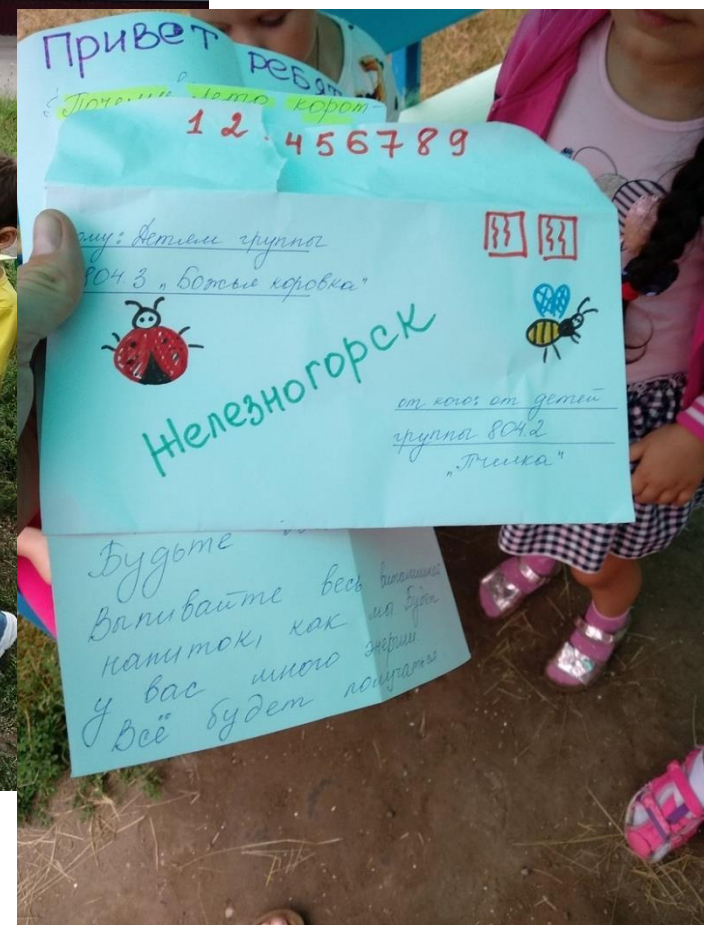 Привет ребят
Почему лето корот-
1 2 . 4 5 6 7 8 9
ому: Детям группы
804.3 „Божья коровка"
Железногорск
от кого: от детей
группы 804.2
„Пчилка"
Будьте
Выпивайте весь
напиток, как мы Будет
у вас много энергии
Всё будет получаться